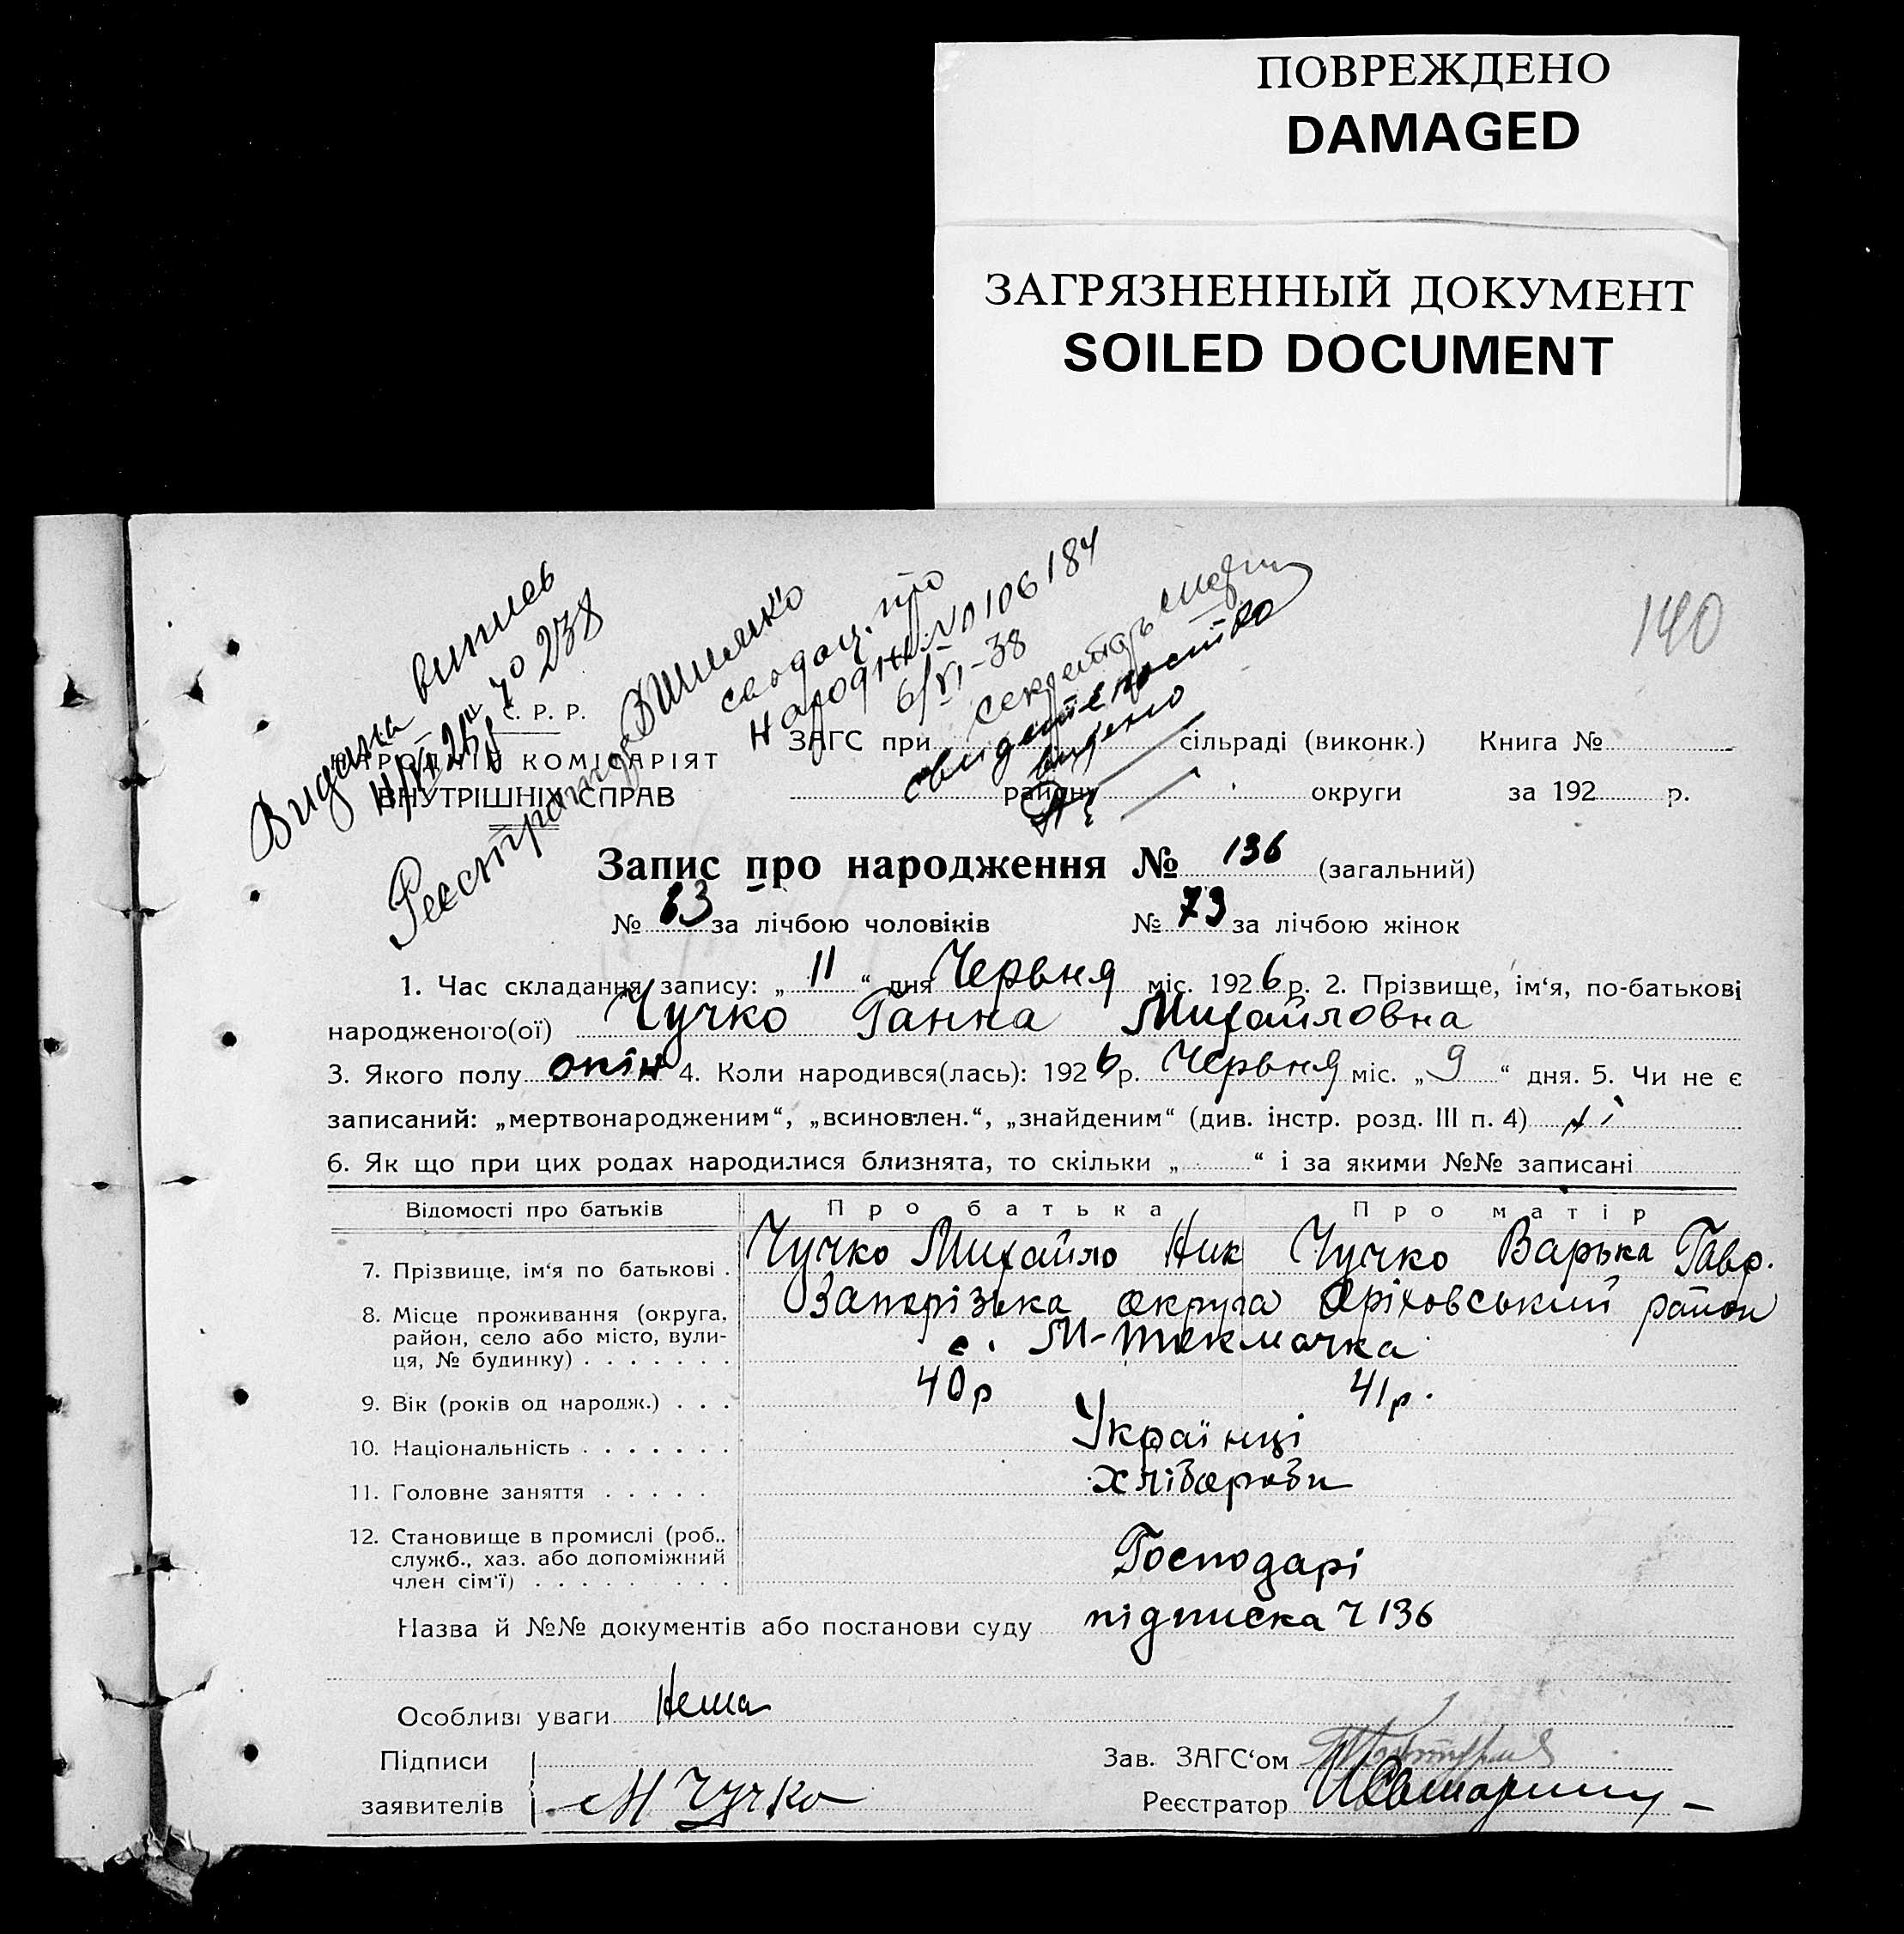 ПОВРЕЖДЕНО
DAMAGED
ЗАГРЯЗНЕННЫЙ ДОКУМЕНТ
SOILED DOCUMENT
140
Видана випись
238
Реєстратор Шишко
про
народж. №0106184
6/VI-38
секретарь
свидетельство
видено
С. Р. Р.
НАРОДНІЙ КОМІСАРІЯТ
ВНУТРІШНІХ СПРАВ
ЗАГС при сільраді (виконк.) Книга №
району округи за 192 р.
Запис про народження № 136 (загальний)
№ 63 за лічбою чоловіків № 73 за лічбою жінок
1. Час складання запису: „ 11 “ дня Червня міс. 1926 р. 2. Прізвище, ім‘я, по-батькові
народженого(ої) Чучко Ганна Михайловна
3. Якого полу 4. Коли народився(лась): 1926 р. Червня міс. „ 9 “ дня. 5. Чи не є
записаний: „мертвонародженим“, „всиновлен.“, „знайденим“ (див. інстр. розд. III п. 4) ні
6. Як що при цих родах народилися близнята, то скільки „ “ і за якими №№ записані
Відомості про батьків Про батька Про матір
7. Прізвище, ім‘я по батькові . Чучко Михайло Ник Чучко Варька Гавр.
8. Місце проживання (округа, Запорізька округа Оріховський район
район, село або місто, вули- с. М-Токмачка
ця, № будинку) . . . . . . .
9. Вік (років од народж.) . . . 40р 41р.
10. Національність . . . . . . . Українці
11. Головне заняття . . . . . хлібороби
12. Становище в промислі (роб.,
служб., хаз. або допоміжний Господарі
член сім‘ї) . . . . . . . . .
Назва й №№ документів або постанови суду підписка Ч 136
Особливі уваги Нема
Підписи Зав. ЗАГС‘ом
заявителів М Чучко Реєстратор